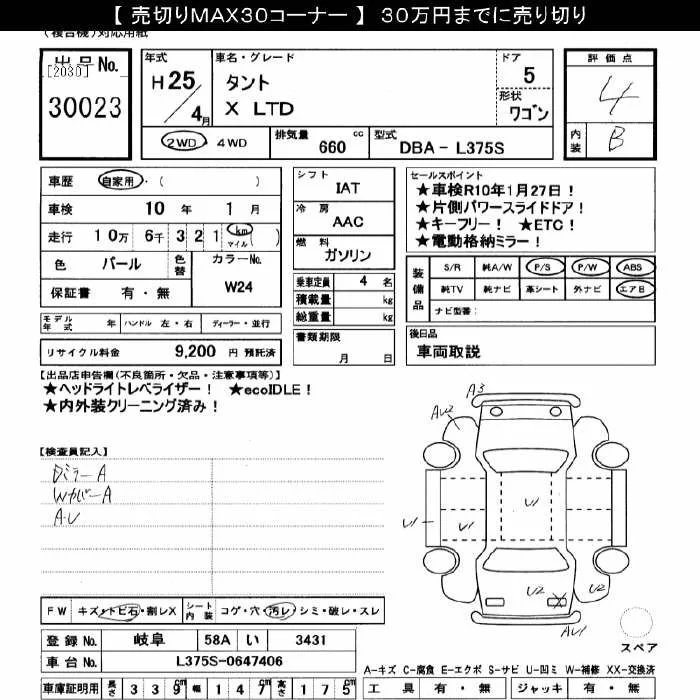 【 売切りMAX30コーナー 】 30万円までに売り切り
(複合機)対応用紙
出品No.
[2030]
30023
年式
H 25
4月
車名・グレード
タント
X LTD
ドア
5
形状
ワゴン
2WD・4WD
排気量
660 cc
型式
DBA - L375S
評価点
4
内装
B
車歴 自家用・( )
車検 10 年 1 月
走行 10万 6千 3 2 1 km マイル ( )
色 パール
色替
カラーNo.
W24
保証書 有・無
シフト
IAT
冷房
AAC
燃料
ガソリン
セールスポイント
★車検R10年1月27日！
★片側パワースライドドア！
★キーフリー！ ★ETC！
★電動格納ミラー！
装備品
S/R 純A/W P/S P/W ABS
純TV 純ナビ 革シート 外ナビ エアB
ナビ型番：
乗車定員 4 名
積載量 kg
総重量 kg
モデル年式 年 ハンドル 左・右 ディーラー・並行
リサイクル料金 9,200 円 預託済
書類期限
月 日
後日品
車両取説
【出品店申告欄(不良箇所・欠品・注意事項等)】
★ヘッドライトレベライザー！ ★ecoIDLE！
★内外装クリーニング済み！
【検査員記入】
Dミラー A
Wカバー A
A・U
A3
AU2
U1
U1
U1
U2
U2
X
AU1
スペア
FW キズ・トビ石・割レX
シート内装
コゲ・穴・汚レ・シミ・破レ・スレ
登録No. 岐阜 58A い 3431
車台No. L375S-0647406
車庫証明用 長さ 339cm 幅 147cm 高さ 175cm
A-キズ C-腐食 E-エクボ S-サビ U-凹ミ W-補修 XX-交換済
工具 有・無 ジャッキ 有・無